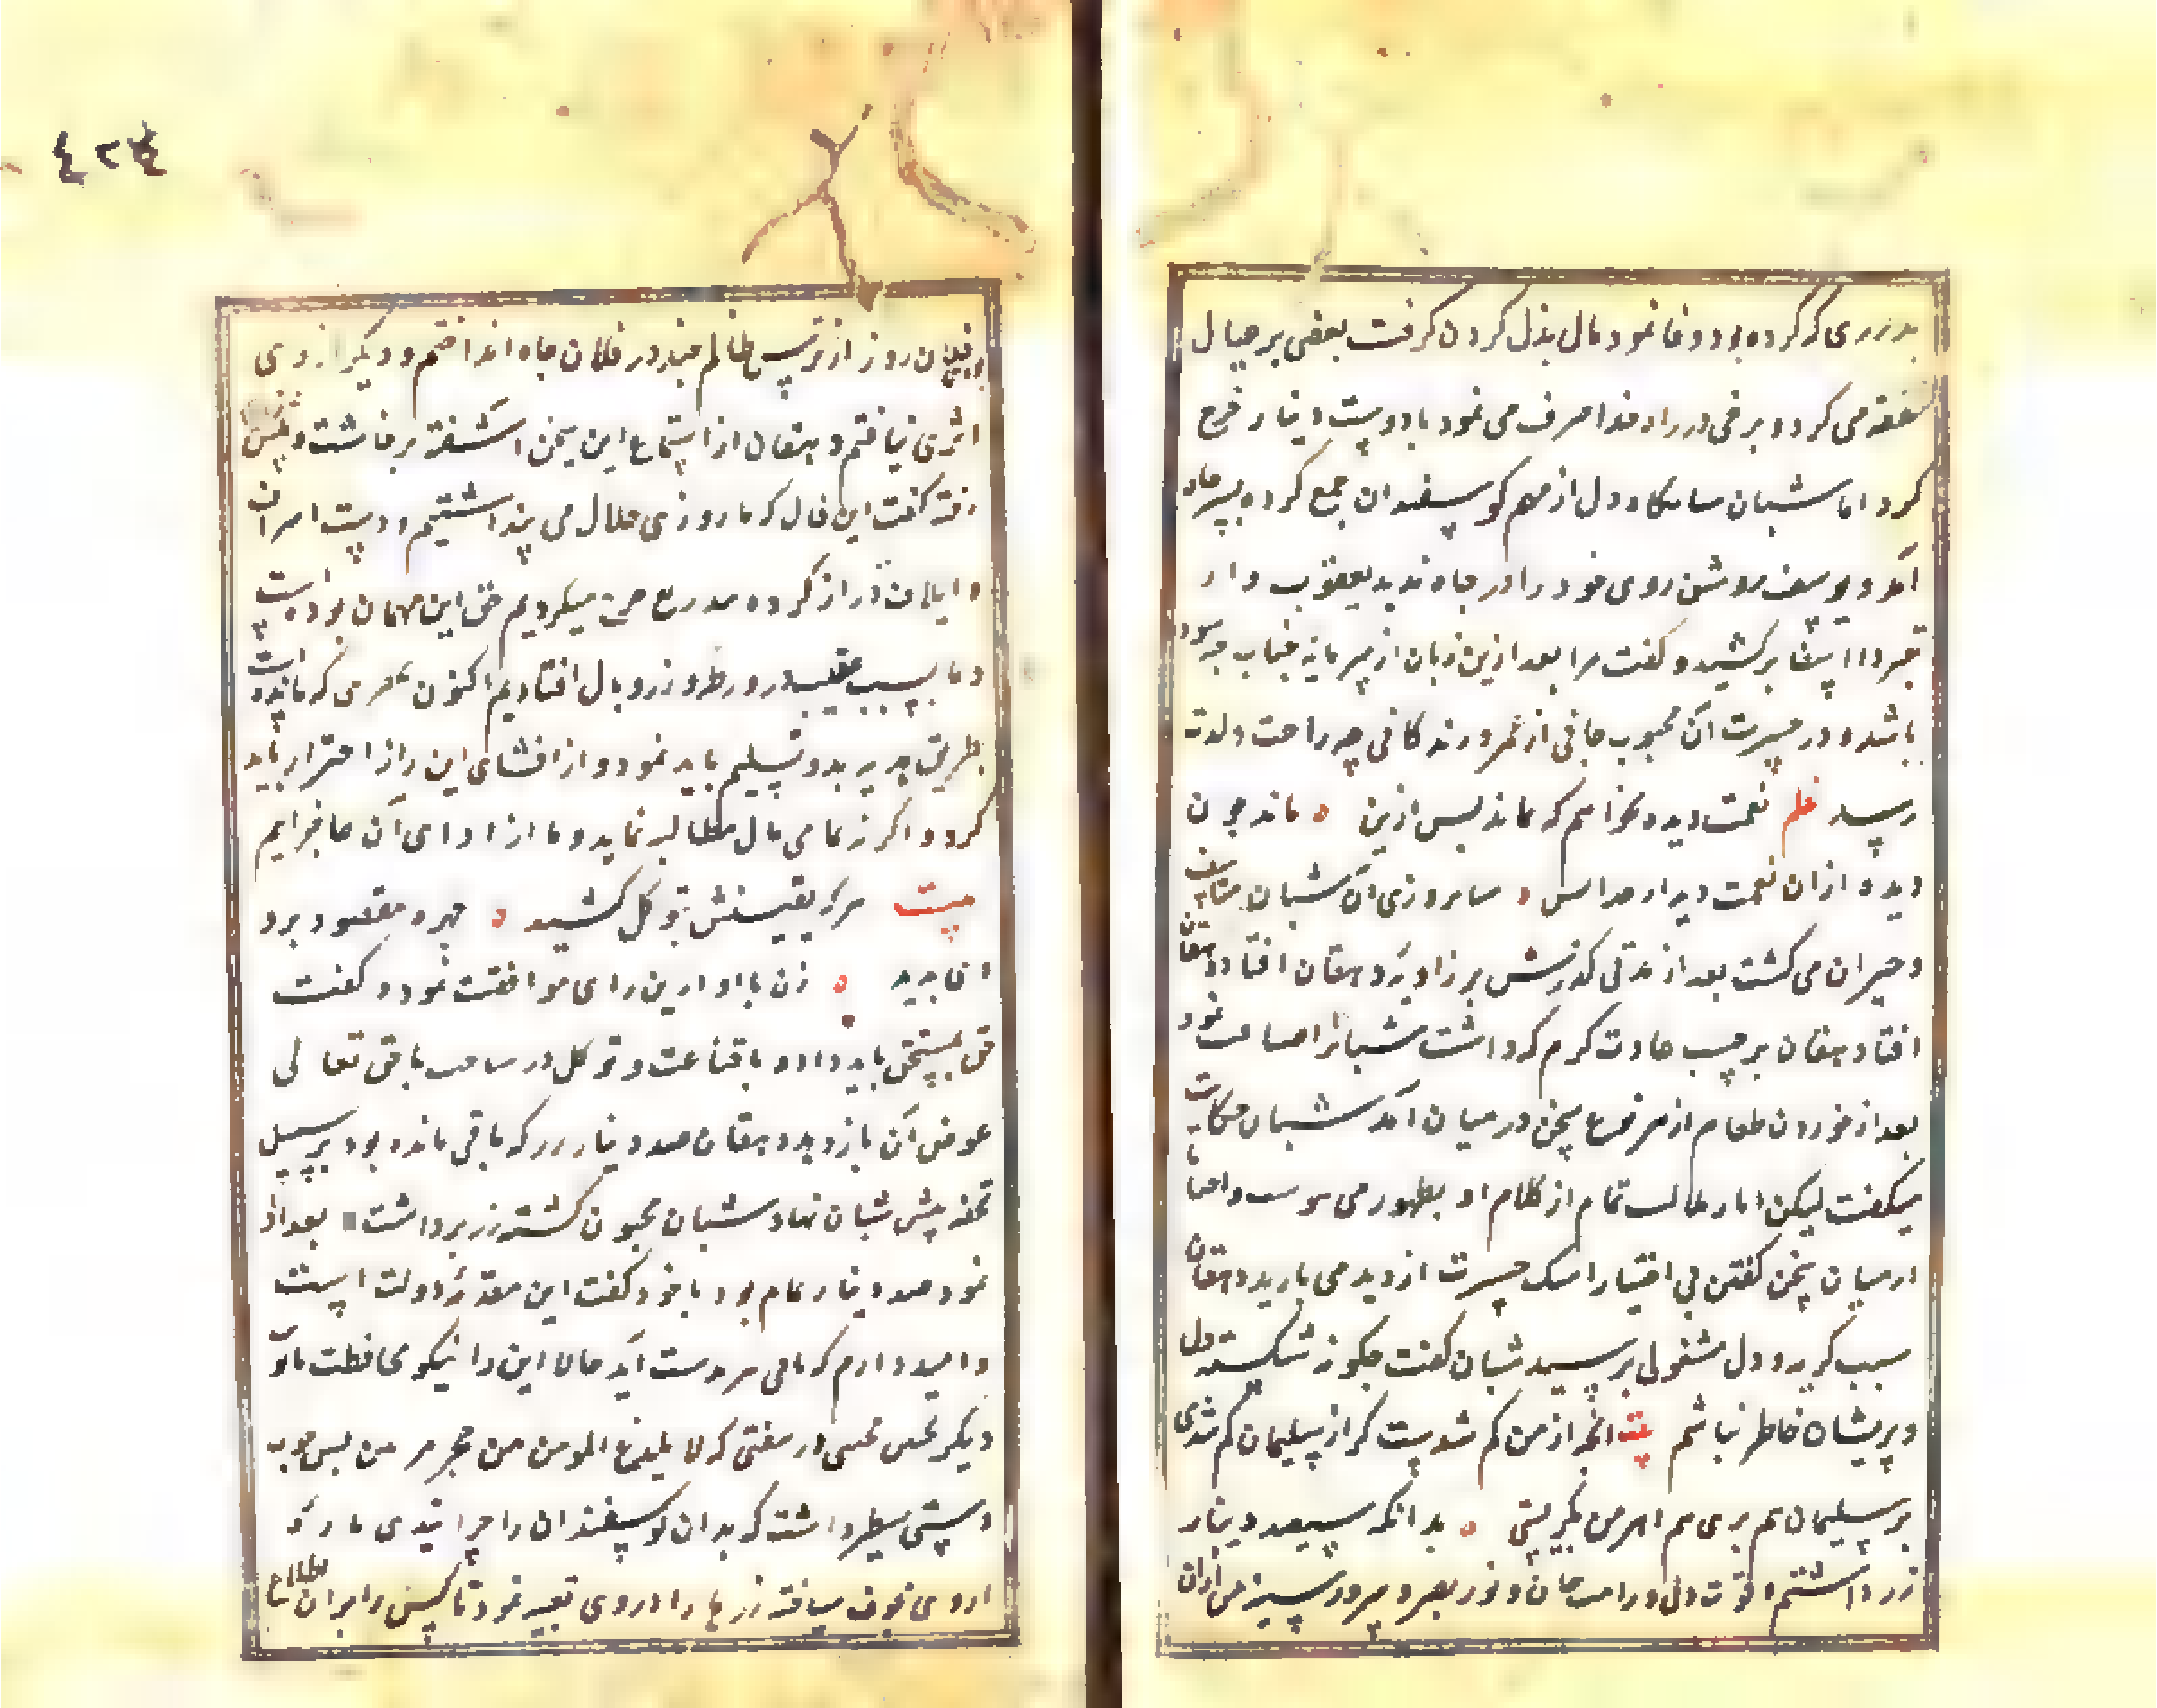 بدزری که کرده بود وفا نمود مال بذل کردن کرفت بعضی بر عیال
نفقه می کرد و برخی در راه خدا صرف می نمود با دویست دینار خرج
کرد اما شبان شبانکاه دل از مهم کوسفندان جمع کرده بسر چاه
آمد و یوسف روشن روی خود را در چاه ندید یعقوب وار
برکشید و کفت مرا بعد ازین زبان از سرمایه چه سود
باشد و در حسرت آن محبوب جانی از عمر و زندکانی چه راحت و لذت
رسید نظم نعمت دیده نخواهم که بماند پس ازین ماند چون
دیده ازان نعمت دیدار جدا پس روزی آن شبان متاسف
و حیران می کشت بعد از مدتی کذرش بر زاویهٔ دهقان افتاد دهقان
دهقان بر حسب عادت کرم که داشت شبانرا ضیافت نمود
بعد از خوردن طعام از هر نوع سخن در میان آمد شبان حکایت
میکفت لیکن آثار ملالت تمام از کلام او بظهور می
در میان سخن کفتن بی اختیار اشک حسرت از دیده می بارید دهقان
سبب کریه و دل مشغولی پرسید شبان کفت چکونه شکسته دل
و پریشان خاطر نباشم بیت آنچه از من کم شدست کر از سلیمان کم شدی
بر سلیمان هم پری هم اهرمن بکریستی بدانکه سیصد دینار
زر داشتم قوت دل و راحت جان و نور بصر و سرور سینه من ازان
فلان روز از ترس ظالم چند در فلان چاه انداختم و دیکر از وی
اثری نیافتم دهقان از استماع این سخن آشفته برخاست و پیش زن
رفته کفت این مال که ما روزی حلال می پنداشتیم و دست اسراف
و اتلاف دراز کرده خرج میکردیم حق این مهمان بوده است
و ما بسبب در ورطه وزر و وبال افتادیم اکنون که مانده است
بطریق هدیه بدو تسلیم باید نمود و از افشای این راز احتراز باید
کرد و اکر تمامی مال مطالبه نماید و ما از ادای آن عاجز ایم
بیت هر که یقینش بتوکل کشید بهره مقصود برد
آن بدید زن با او درین رای موافقت نمود و کفت
حق بمستحق باید داد و با قناعت و توکل در ساخت تا حق تعالی
عوض آن باز دهد دهقان صد دینار زر که باقی مانده بود بر سبیل
تحفه پیش شبان نهاد شبان ممنون کشته زر برداشت بعد از
نمود صد دینار تمام بود با خود کفت این مقدمهٔ دولت است
و امیدوارم که باقی بدست آید حالا این را نیکو محافظت باید
دیکر که لا یلدغ المومن من جحر مرتین پس چوب
دستی سطبر داشت که بدان کوسفندان را چرانیدی
زرها را در وی تعبیه نمود تا کسی را بران اطلاع